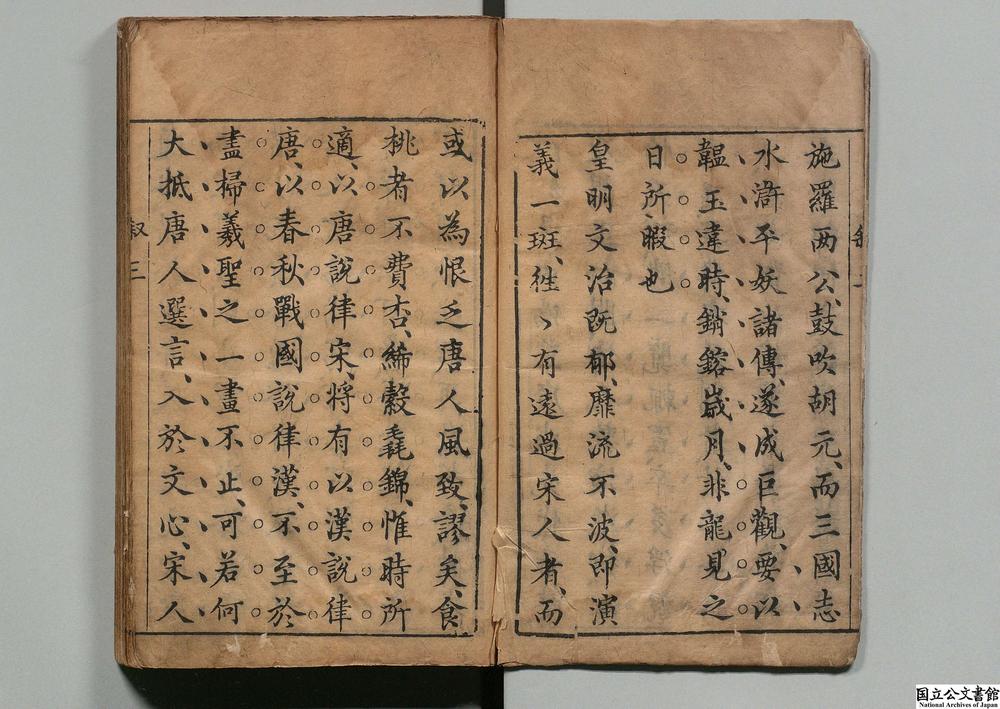 施羅兩公、鼓吹胡元、而三國志
水滸平妖諸傳、遂成巨觀、要以
韞玉違時、銷鎔歲月、非龍見之
日所暇也
皇明文治既郁、靡流不波、即演
義一斑、徃〻有遠過宋人者、而
或以為恨乏唐人風致、謬矣、食
桃者不費杏、絺縠毳錦、惟時所
適、以唐說律宋、將有以漢說律
唐、以春秋戰國說律漢、不至於
盡掃羲聖之一畫不止、可若何
大抵唐人選言、入於文心、宋人
叙三
国立公文書館
National Archives of Japan